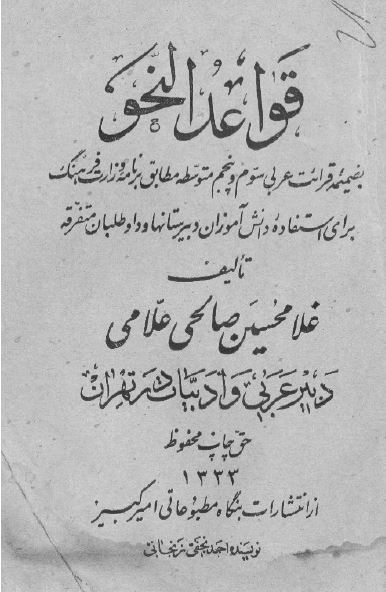 قواعد النحو
بضمیمهٔ قرائت عربی سوم و پنجم متوسطه مطابق برنامهٔ وزارت فرهنگ
برای استفادهٔ دانش آموزان دبیرستانها و داوطلبان متفرقه
تألیف
غلامحسین صالحی علامی
دبیر عربی و ادبیات در تهران
حق چاپ محفوظ
۱۳۳۳
از انتشارات بنگاه مطبوعاتی امیرکبیر
نویسنده احمد نجفی زنجانی